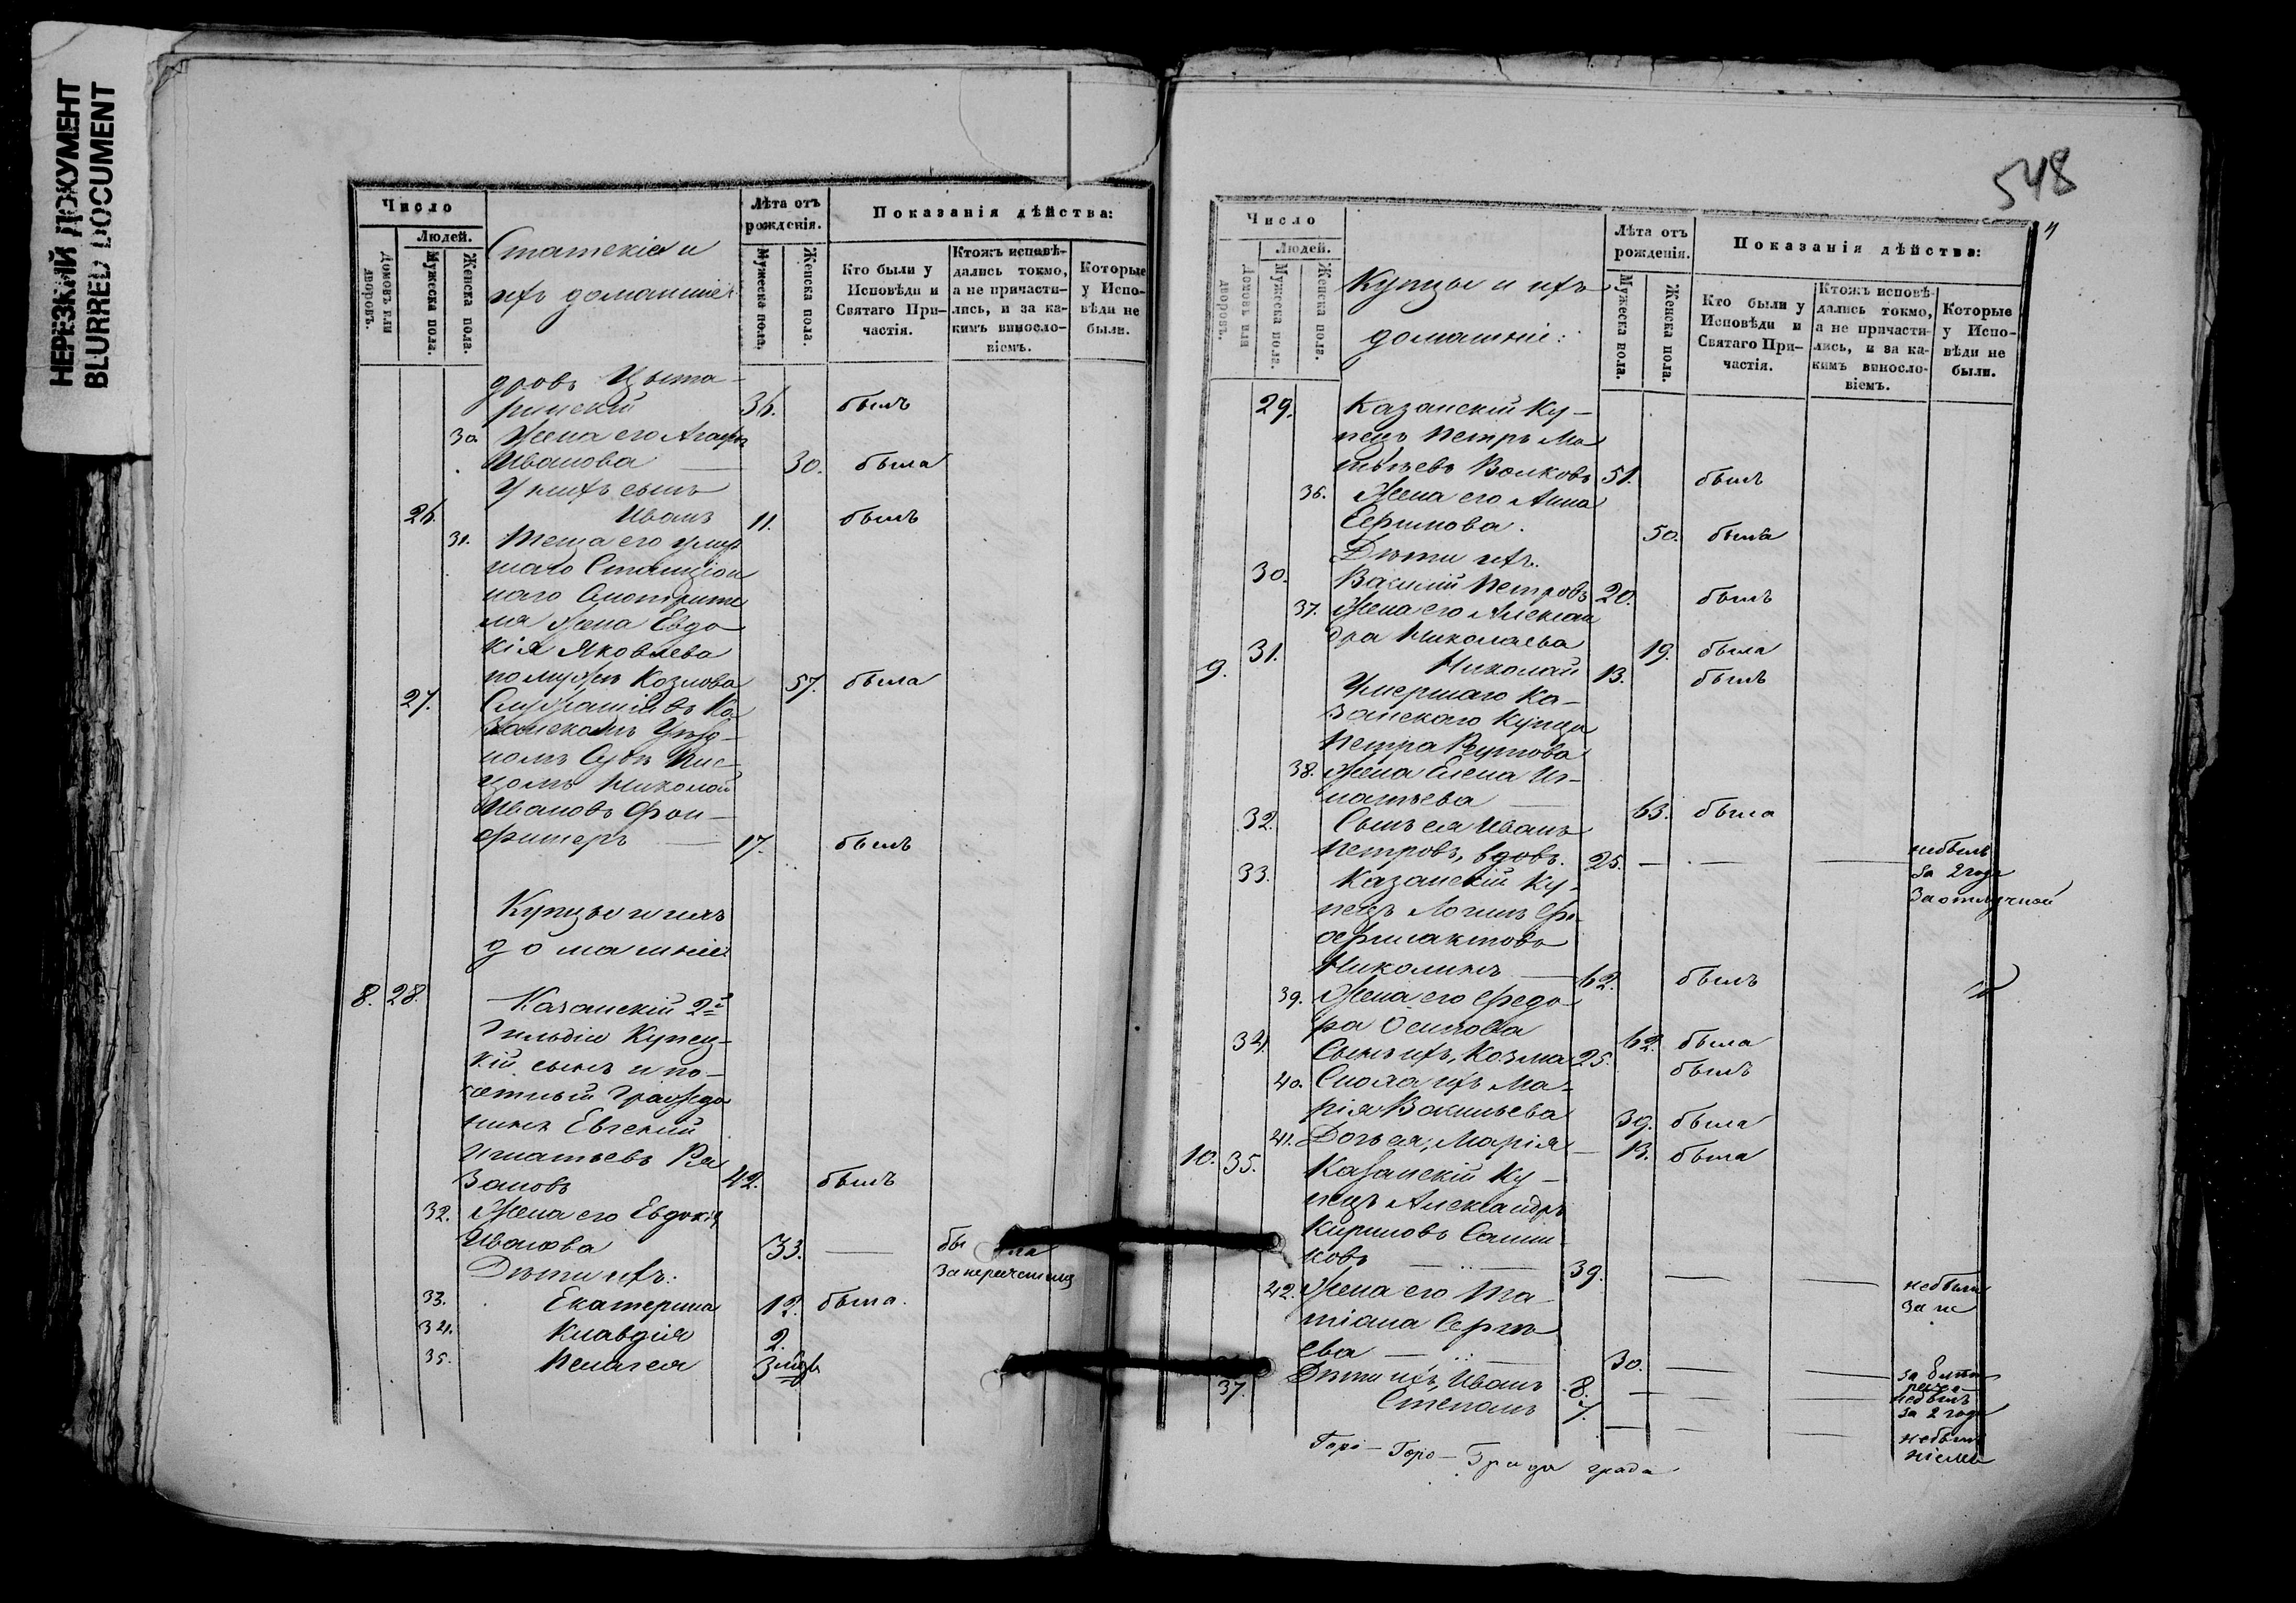 НЕРЕЗКИЙ ДОКУМЕНТ
BLURRED DOCUMENT
Число
Людей.
Домовъ или дворовъ.
Мужеска пола.
Женска пола.
Статскіе и
ихъ домашніе
Лѣта отъ рожденія.
Мужеска пола.
Женска пола.
Показанія дѣйства:
Кто были у Исповѣди и Святаго Причастія.
Ктожъ исповѣдались токмо, а не причастились, и за какимъ винословіемъ.
Которые у Исповѣди не были.
дровъ
ринскій 36. былъ
30. Жена его Агафья
Иванова — 30. была
У нихъ сынъ
26. Иванъ 11. былъ
31. Теща его умер
шаго Станціон
наго Смотрите
ля жена Евдо
кія Яковлева
по мужѣ Козлова 57. была
27. Служащій въ Ка
занскомъ Уѣзд-
номъ Судѣ Пис
цомъ Николай
Ивановъ Фон-
 — 17. былъ
Купцы и ихъ
домашніе
8. 28. Казанскій 2й
Гильдіи Купец-
кій сынъ и по-
четный Гражда
нинъ Евгений
Игнатьевъ Ря
зановъ 42. былъ
32. Жена его Евдокія
Иванова 33. —
Дѣти ихъ:
33. Екатерина 12. была.
34. Клавдія 2.
35. Пелагея 3 мѣсц
548
Число
Людей.
Домовъ или дворовъ.
Мужеска пола.
Женска пола.
Купцы и ихъ
домашніе:
Лѣта отъ рожденія.
Мужеска пола.
Женска пола.
Показанія дѣйства:
Кто были у Исповѣди и Святаго Причастія.
Ктожъ исповѣдались токмо, а не причастились, и за какимъ винословіемъ.
Которые у Исповѣди не были.
29. Казанскій Ку-
пецъ Петръ Ма
твѣевъ Волковъ 51. былъ
36. Жена его Анна
Ефимова. 50. была
Дѣти ихъ.
30. Василій Петровъ 20. былъ
37. Жена его Алексан
дра Николаева 19. была
31. Николай 13. былъ
9. Умершаго Ка-
занскаго Купца
Петра
38. Жена Елена Иг-
натьева — 63. была
32. Сынъ ея Иванъ
Петровъ, вдовъ. 25. — — — небылъ
за 2 года
за отлучкой
33. Казанскій Ку-
пецъ Логинъ Фе-
офилактовъ
Николинъ — 62. былъ
39. Жена его Федо-
ра Осипова 62. была
34. Сынъ ихъ, Козма 25. былъ
40. Сноха ихъ Ма-
рія Васильева 39. была
41. Дочь ея, Марія — 13. была
10. 35. Казанскій Ку-
пецъ Александръ
Кириловъ Санни
ковъ — 39. — — небылъ
42. Жена его Та-
тіана Сергѣ
ева — 30. — —
Дѣти ихъ, Иванъ 8. — — небылъ
за 2 года
37. Степанъ 7. — — небылъ
Горо- Горо- Града града